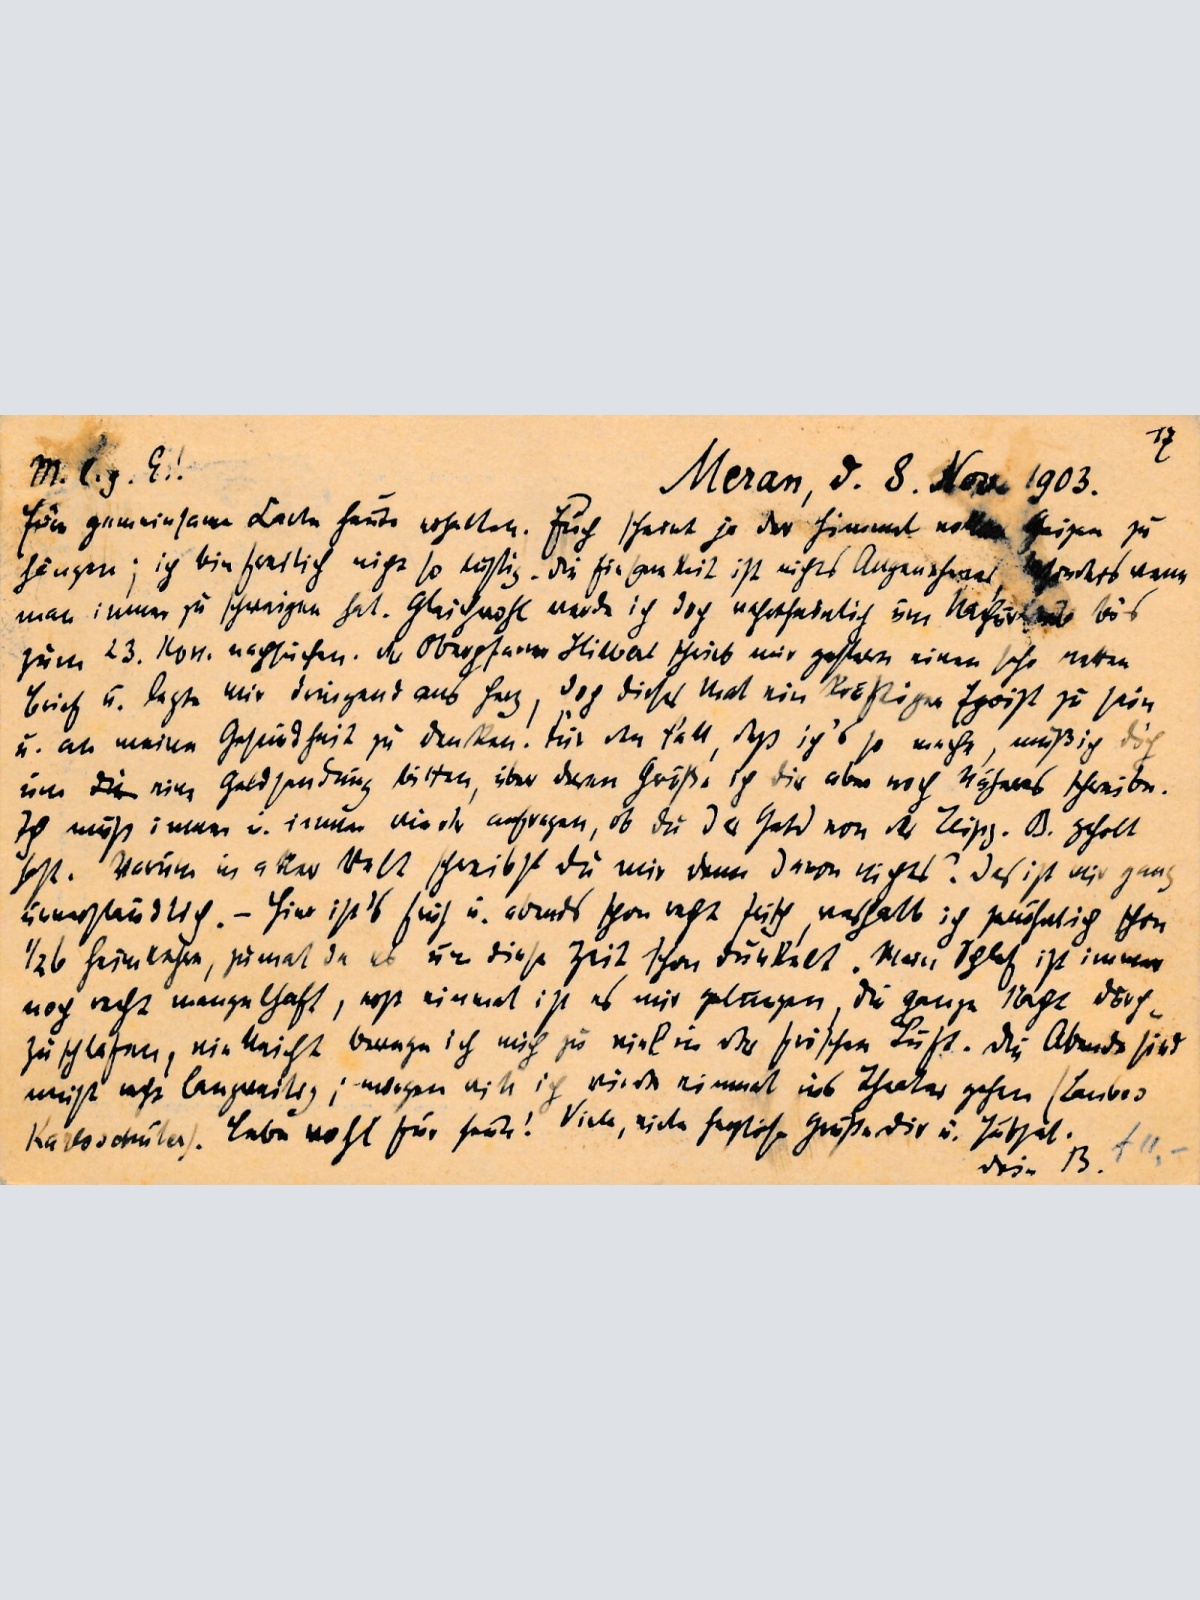 17
M. l. g. E.!
Meran, d. 8. Nov. 1903.
Eure gemeinsame Karte heute erhalten. Euch scheint ja der Himmel voller Geigen zu
hängen; ich bin freilich nicht so lustig. Die Einsamkeit ist nichts Angenehmes, besonders wenn
man immer zu schweigen hat. Gleichwohl werde ich doch wahrscheinlich um Nachurlaub bis
zum 23. Nov. nachsuchen. Der Oberpfarrer schrieb mir gestern einen sehr netten
Brief u. legte mir dringend ans Herz, doch dieses Mal ein kräftiger Egoist zu sein
u. an meine Gesundheit zu denken. Für den Fall, daß ich's so mache, muß ich dich
um eine Geldsendung bitten, über deren Größe ich dir aber noch Näheres schreibe.
Ich muß immer u. immer wieder anfragen, ob du das Geld von der Leipz. B. geholt
hast. Warum in aller Welt schreibst du mir denn davon nichts? Das ist mir ganz
unverständlich. – Hier ist's früh u. abends schon recht frisch, weshalb ich gewöhnlich schon
1/26 heimkehre, zumal da es um diese Zeit schon dunkelt. Mein Schlaf ist immer
noch recht mangelhaft, erst einmal ist es mir gelungen, die ganze Nacht durch-
zuschlafen, vielleicht bewege ich mich zu viel in der frischen Luft. Die Abende sind
meist recht langweilig; morgen will ich wieder einmal ins Theater gehen (Laubes
Karlsschüler). Lebe wohl für heute! Viele, viele herzliche Grüße dir u.
dein B.